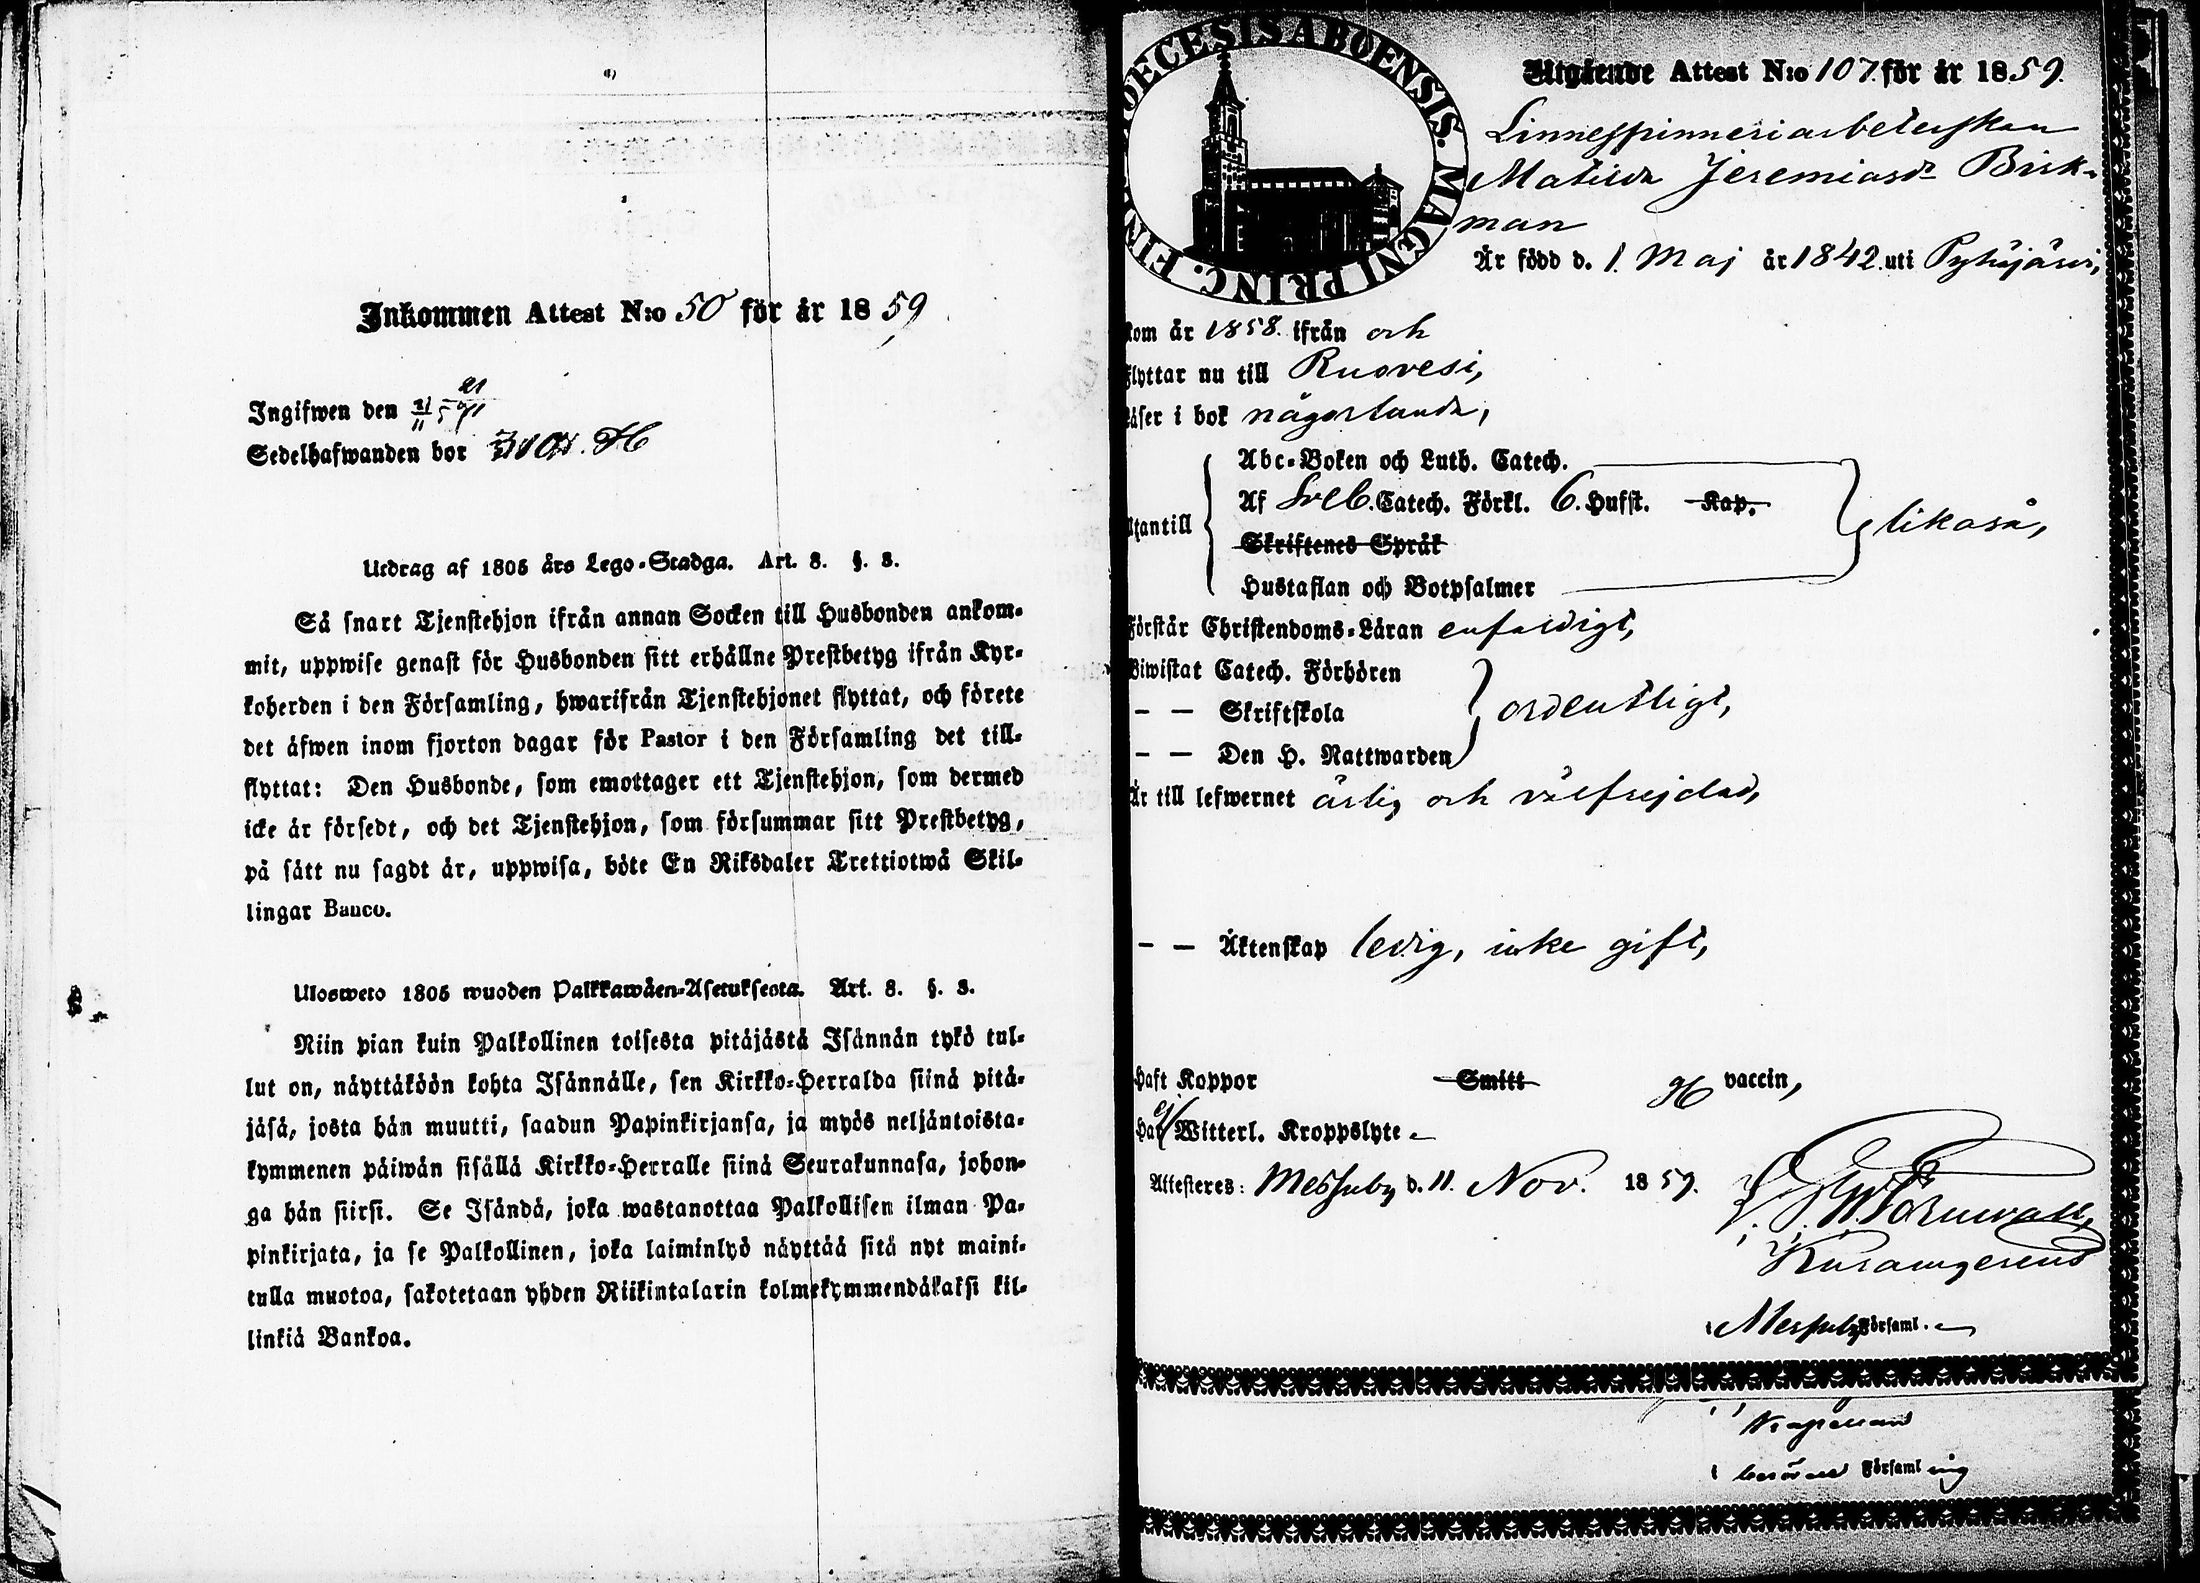 Inkommen Attest N:o 50 för år 1859
Ingifwen den 21/11 59
Sedelhafwanden bor
Utdrag af 1805 års Lego-Stadga. Art. 8. §. 3.
Så snart Tjenstehjon ifrån annan Socken till Husbonden ankom-
mit, uppwise genast för Husbonden sitt erhållne Prestbetyg ifrån Kyr-
koherden i den Församling, hwarifrån Tjenstehjonet flyttat, och förete
det äfwen inom fjorton dagar för Pastor i den Församling det till-
flyttat: Den Husbonde, som emottager ett Tjenstehjon, som dermed
icke är försedt, och det Tjenstehjon, som försummar sitt Prestbetyg,
på sätt nu sagdt är, uppwisa, böte En Riksdaler Trettiotwå Skil-
lingar Banco.
Ulosweto 1805 wuoden Palkkawäen-Asetuksesta. Art. 8. §. 3.
Niin pian kuin Palkollinen toisesta pitäjästä Isännän tykö tul-
lut on, näyttäköön kohta Isännälle, sen Kirkko-Herralda siinä pitä-
jäsä, josta hän muutti, saadun Papinkirjansa, ja myös neljäntoista-
kymmenen päiwän sisällä Kirkko-Herralle siinä Seurakunnasa, johon-
ga hän siirsi. Se Isändä, joka wastanottaa Palkollisen ilman Pa-
pinkirjata, ja se Palkollinen, joka laiminlyö näyttää sitä nyt maini-
tulla muotoa, sakotetaan yhden Riikintalarin kolmekymmendäkaksi kil-
linkiä Bankoa.
DIOECESIS ABOENSIS. MAGNI PRINC. FINL
Utgående Attest N:o 107 för år 1859.
Linnespinneriarbeterskan
Matilda Jeremiasdr Brisk-
man
Är född d. 1. Maj år 1842. uti Pyhäjärvi,
kom år 1858. ifrån och
flyttar nu till Ruovesi,
Läser i bok någorlunda,
Utantill
Abc-Boken och Luth. Catech.
Af Sveb. Catech. Förkl. 6. Hufst. Kap.
Skriftenes Språk
Hustaflan och Botpsalmer
likaså,
Förstår Christendoms-Läran enfaldigt,
Biwistat Catech. Förhören
— — Skriftskola
— — Den H. Nattwarden
ordentligt,
Är till lefwernet ärlig och välfrejdad,
— — Äktenskap ledig, icke gift,
Haft Koppor Smitt vaccin,
Har ej Witterl. Kroppslyte
Attesteras: Messuby d. 11. Nov. 1859.
i Messuby Församl.
Kapellan
i Församling